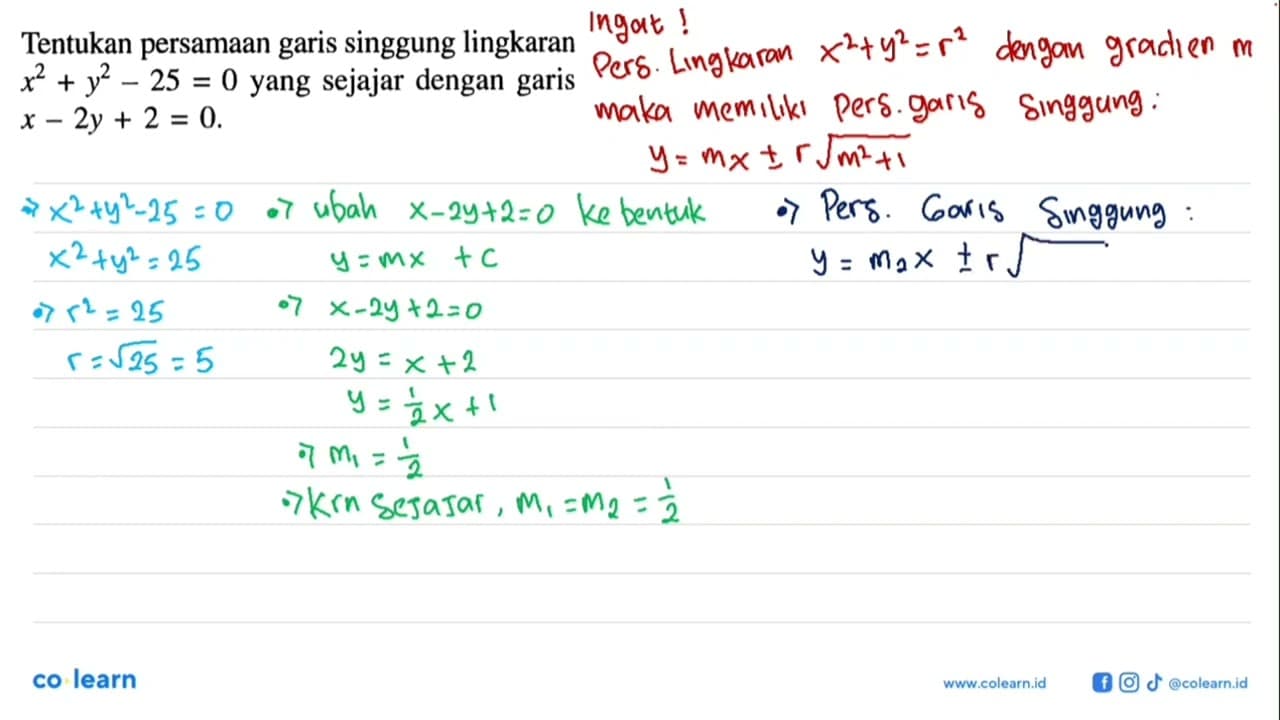 Tentukan persamaan garis singgung lingkaran
x² + y² – 25 = 0 yang sejajar dengan garis
x – 2y + 2 = 0.
Ingat !
Pers. Lingkaran x²+y²=r² dengan gradien m
maka memiliki pers. garis singgung :
y = mx ± r√(m²+1)
⇒ x²+y²-25 = 0
x²+y² = 25
⇒ r² = 25
r = √25 = 5
⇒ ubah x-2y+2=0 ke bentuk
y = mx + c
⇒ x-2y+2=0
2y = x+2
y = ½x +1
⇒ m₁ = ½
⇒ Krn sejajar, m₁ = m₂ = ½
⇒ Pers. Garis Singgung :
y = m₂x ± r√
co learn
www.colearn.id
@colearn.id